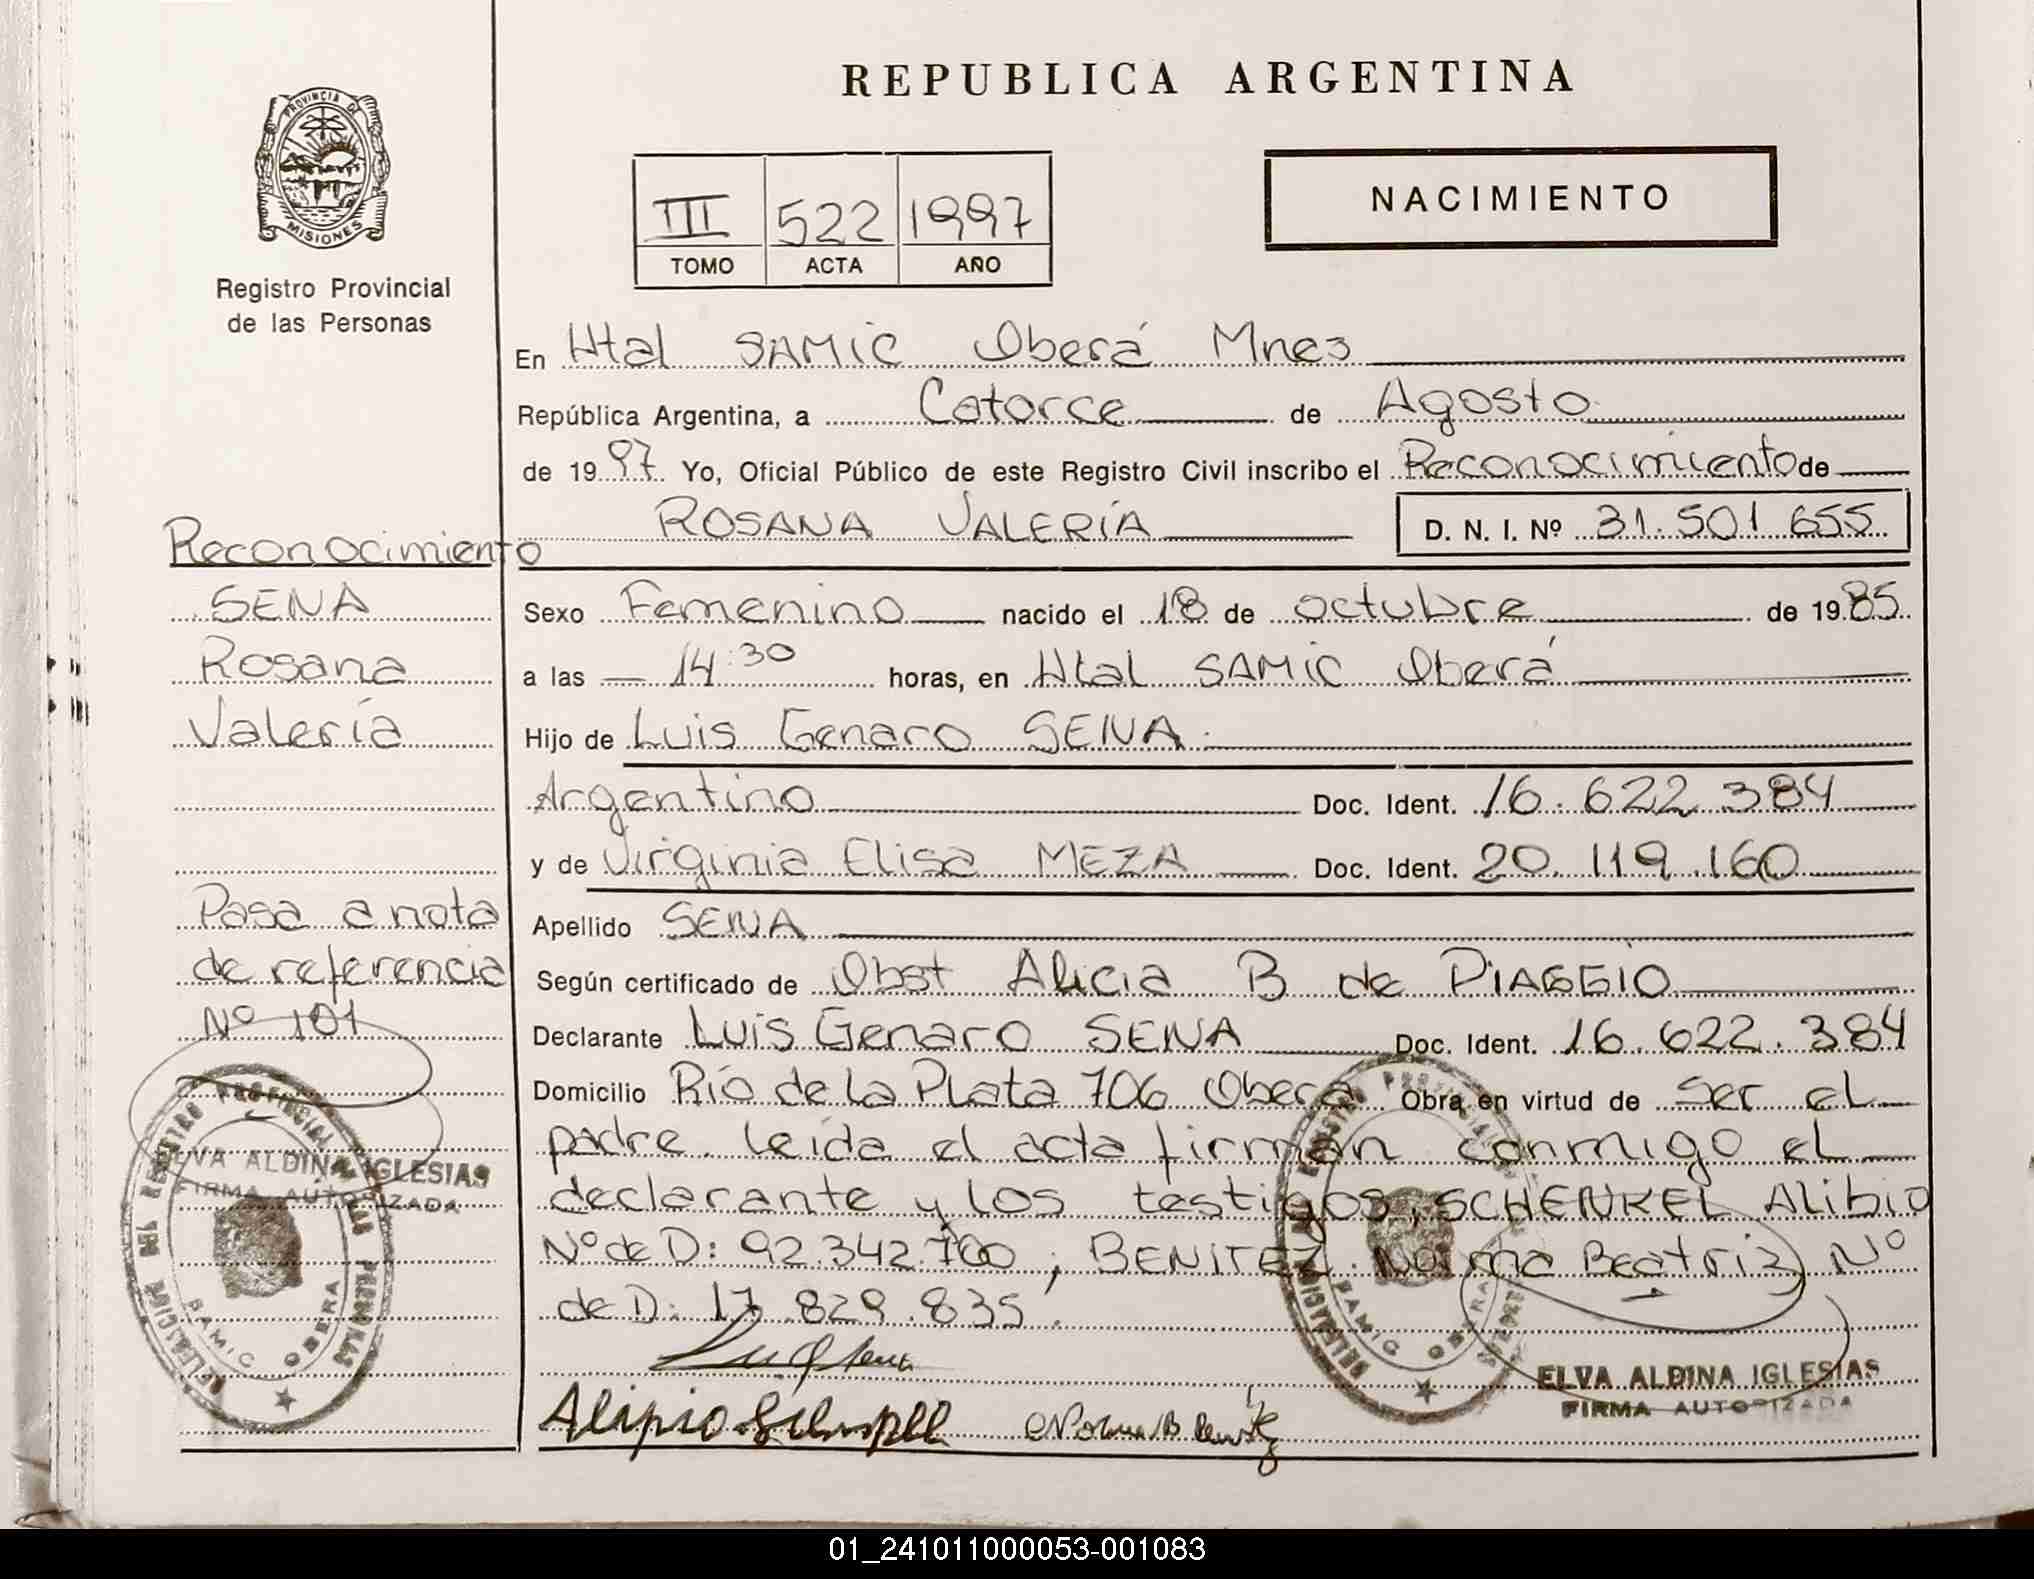 REPUBLICA ARGENTINA
PROVINCIA DE
MISIONES
Registro Provincial
de las Personas
III 522 1997
TOMO ACTA AÑO
NACIMIENTO
En Htal SAMIC Oberá Mnes
República Argentina, a Catorce de Agosto
de 1997 Yo, Oficial Público de este Registro Civil inscribo el Reconocimiento de
ROSANA VALERÍA D. N. I. Nº 31.501.655
Sexo Femenino nacido el 18 de octubre de 1985
a las 14:30 horas, en Htal SAMIC Oberá
Hijo de Luis Genaro SENA
Argentino Doc. Ident. 16.622.384
y de Virginia Elisa MEZA Doc. Ident. 20.119.160
Apellido SENA
Según certificado de Obst Alicia B de PIAGGIO
Declarante Luis Genaro SENA Doc. Ident. 16.622.384
Domicilio Río de la Plata 706 Oberá Obra en virtud de ser el
padre. leída el acta firman conmigo el
declarante y los testigos, SCHENKEL Alibio
Nº de D: 92.342.700 ; BENITEZ Norma Beatriz Nº
de D: 17.829.835.
Reconocimiento
SENA
Rosana
Valería
Pasa a nota
de referencia
Nº 101
DELEGACION DEL REGISTRO PROVINCIAL DE LAS PERSONAS
SAMIC OBERA
ELVA ALDINA IGLESIAS
FIRMA AUTORIZADA
DELEGACION DEL REGISTRO PROVINCIAL
SAMIC OBERA
ELVA ALDINA IGLESIAS
FIRMA AUTORIZADA
Alipio
01_241011000053-001083